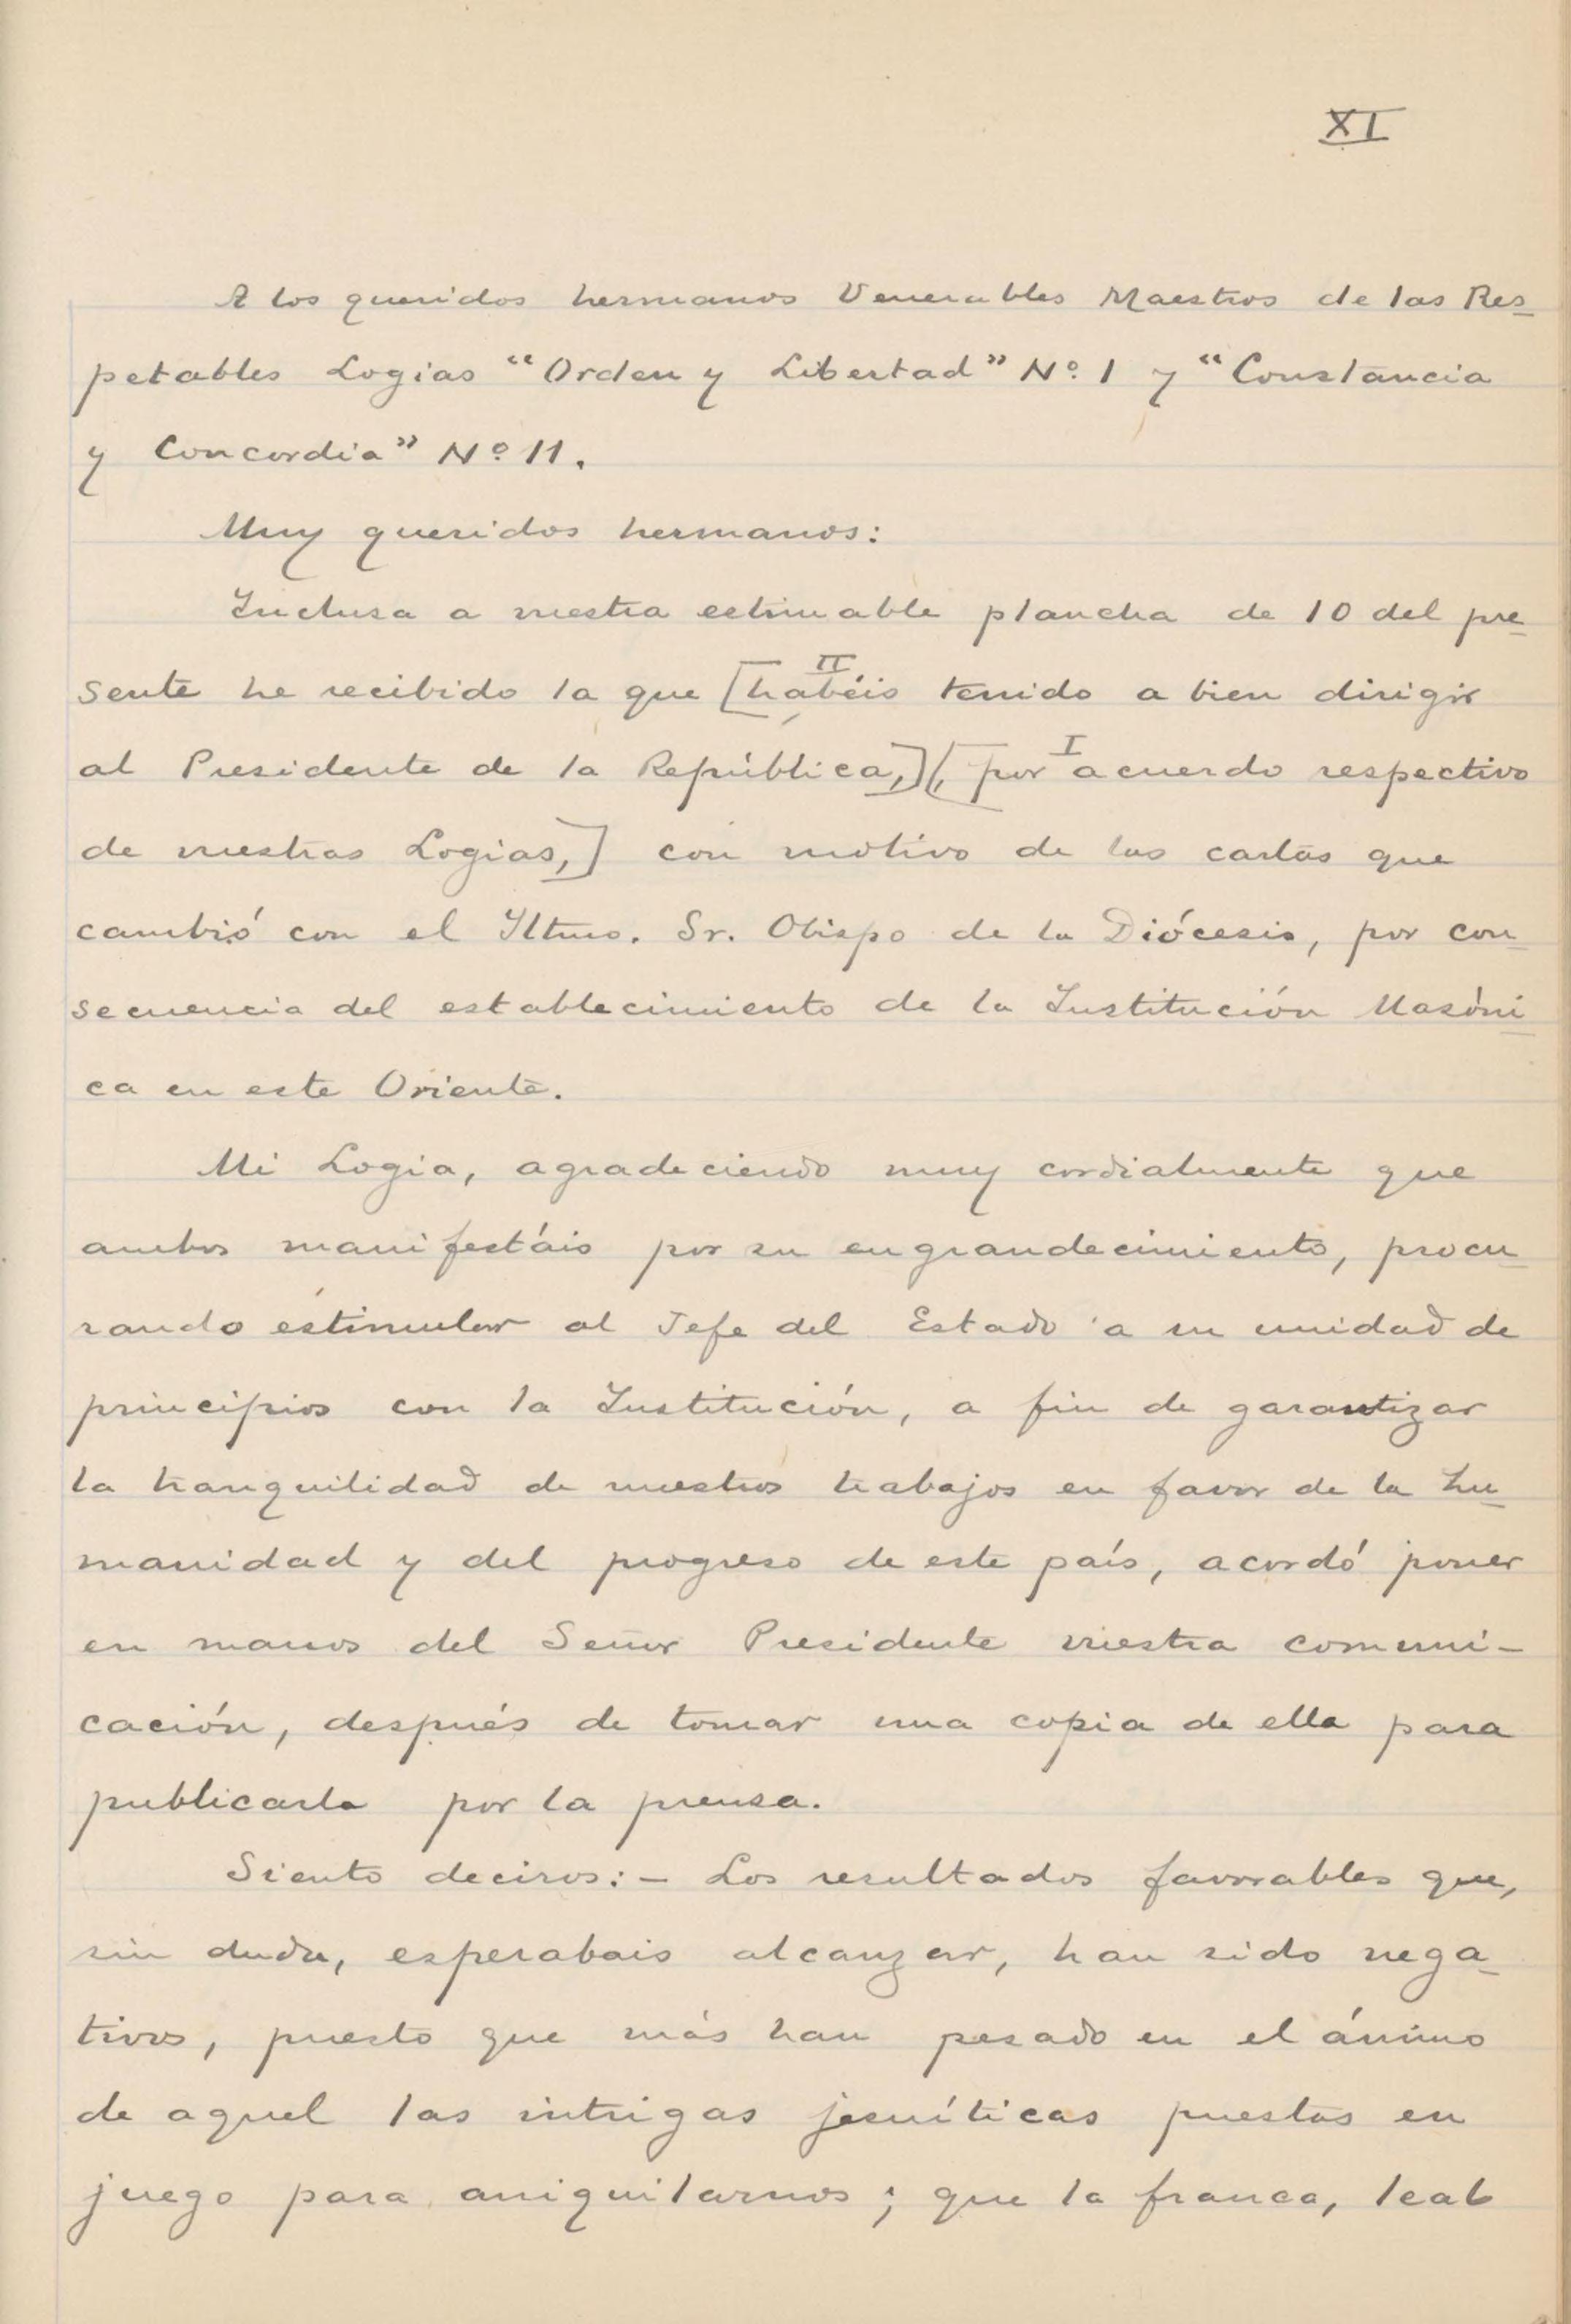 XI
A los queridos hermanos Venerables Maestros de las Res-
petables Logias "Orden y Libertad" Nº 1 y "Constancia
y Concordia" Nº 11.
Muy queridos hermanos:
Inclusa a vuestra estimable plancha de 10 del pre-
II
sente he recibido la que [habéis tenido a bien dirigir
I
al Presidente de la República,] [, por acuerdo respectivo
de vuestras Logias,] con motivo de las cartas que
cambió con el Iltmo. Sr. Obispo de la Diócesis, por con-
secuencia del establecimiento de la Institución Masóni-
ca en este Oriente.
Mi Logia, agradeciendo muy cordialmente que
ambos manifestáis por su engrandecimiento, procu-
rando estimular al Jefe del Estado a su unidad de
principios con la Institución, a fin de garantizar
la tranquilidad de nuestros trabajos en favor de la hu-
manidad y del progreso de este país, acordó poner
en manos del Señor Presidente vuestra comuni-
cación, después de tomar una copia de ella para
publicarla por la prensa.
Siento deciros:- Los resultados favorables que,
sin duda, esperabais alcanzar, han sido nega-
tivos, puesto que más han pesado en el ánimo
de aquel las intrigas jesuíticas puestas en
juego para aniquilarnos; que la franca, leal